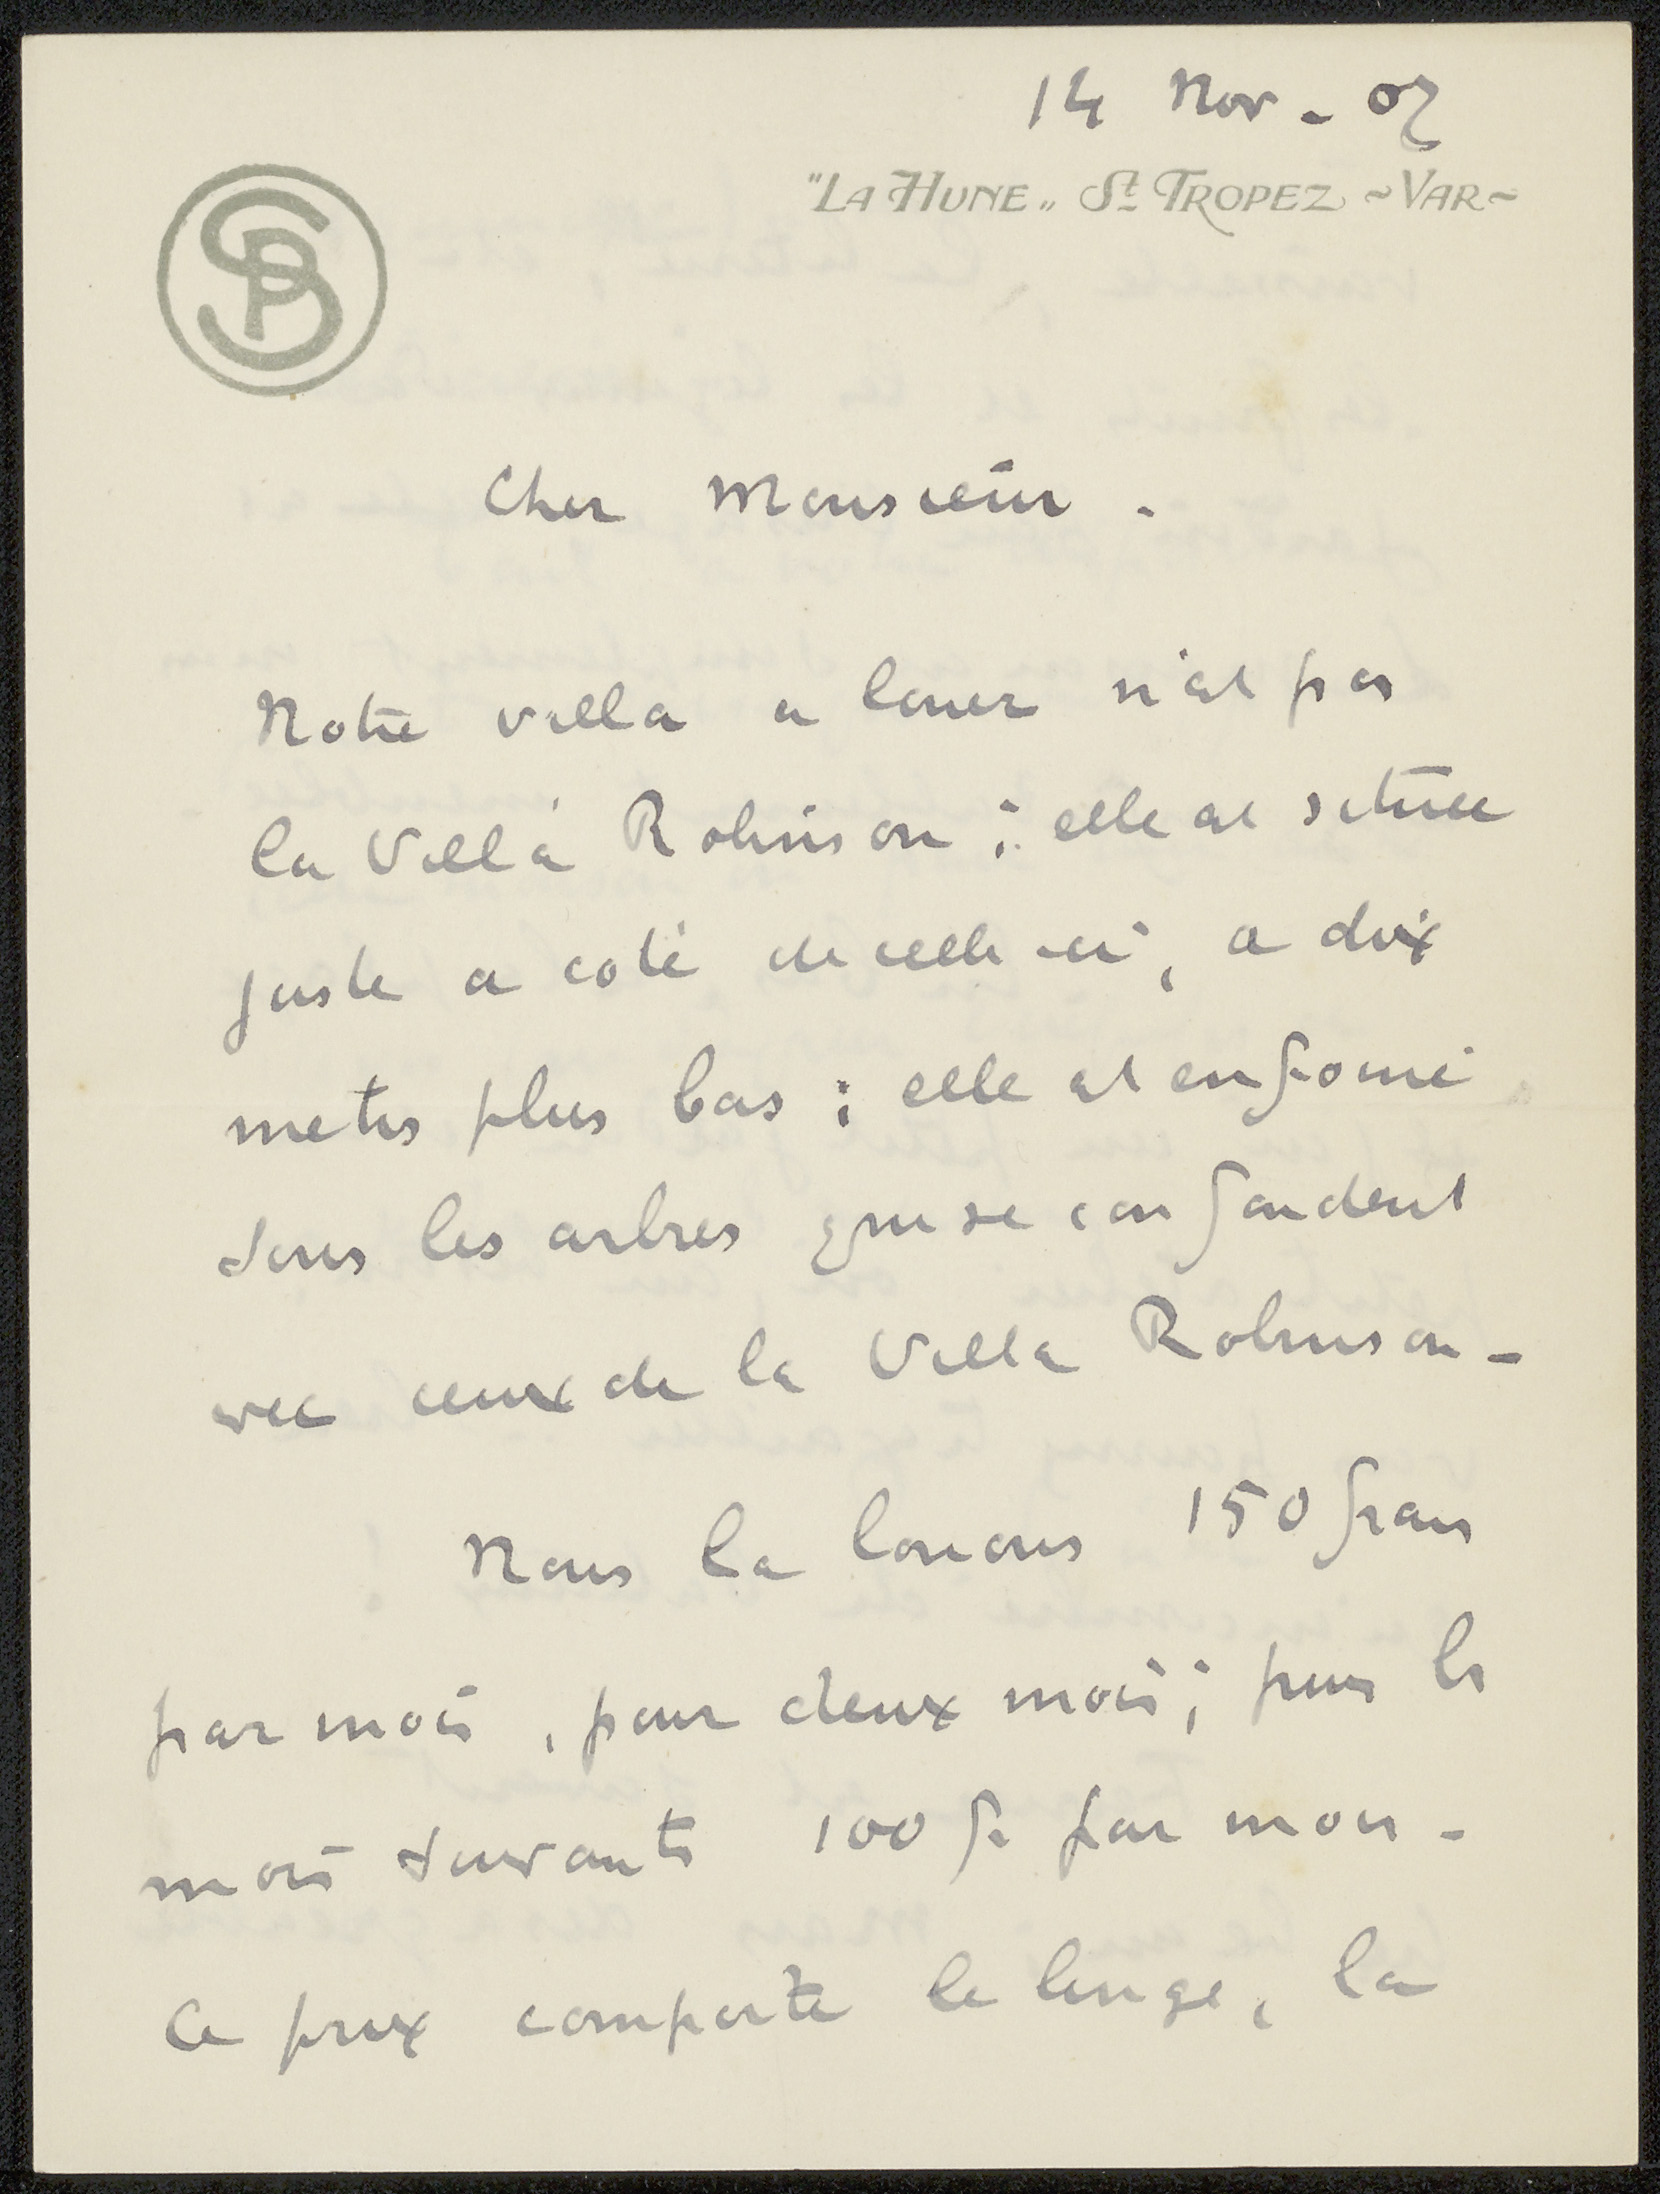 14 Nov - 07
"LA HUNE" St TROPEZ ~VAR~
SPB
Cher Monsieur.
Notre villa a louer n'est pas
la Villa Robinson ; elle est située
juste a coté de celle-ci, a dix
metres plus bas ; elle est enfouie
sous les arbres qui se confondent
avec ceux de la Villa Robinson -
Nous la louons 150 francs
par mois, pour deux mois ; puis les
mois suivants 100 fr par mois -
Ce prix comporte le linge, la